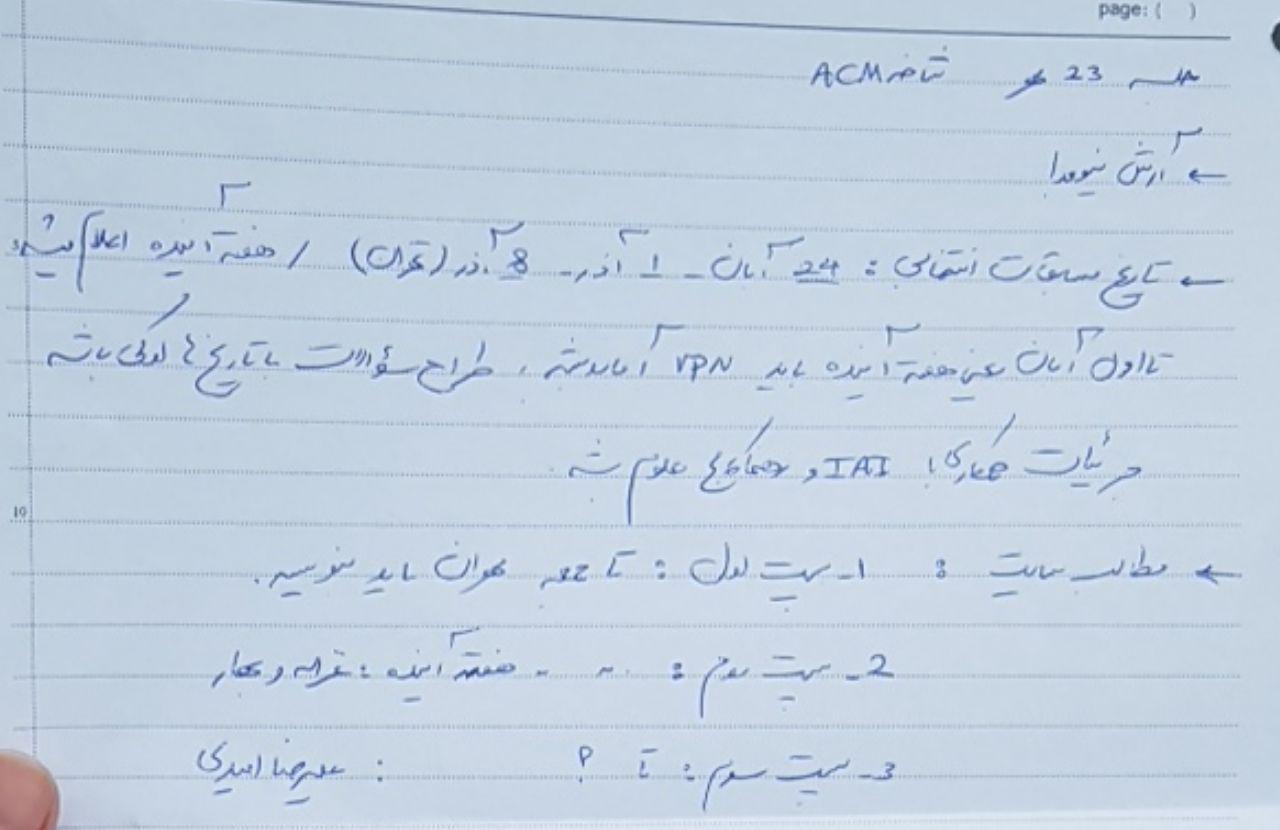 page: ( )
جلسه 23 مهر شاخه ACM
← آرش نیومد!
← تاریخ مسابقات انتخابی : 24 آبان - 1 آذر - 8 آذر (تهران) / هفته آینده اعلام میشه
تا اول آبان یعنی هفته آینده باید VPN آماده بشه ، طراح سؤالات با تاریخ ها اوکی باشه
جزئیات همکاری با IAI و همکاری علوم شه.
← مطالب سایت : 1- پست اول : تا جمعه باید بنویسه.
2- پست دوم : " " هفته آینده : غزاله و بهار
3- پست سوم : تا ؟ : علیرضا امیدی
10